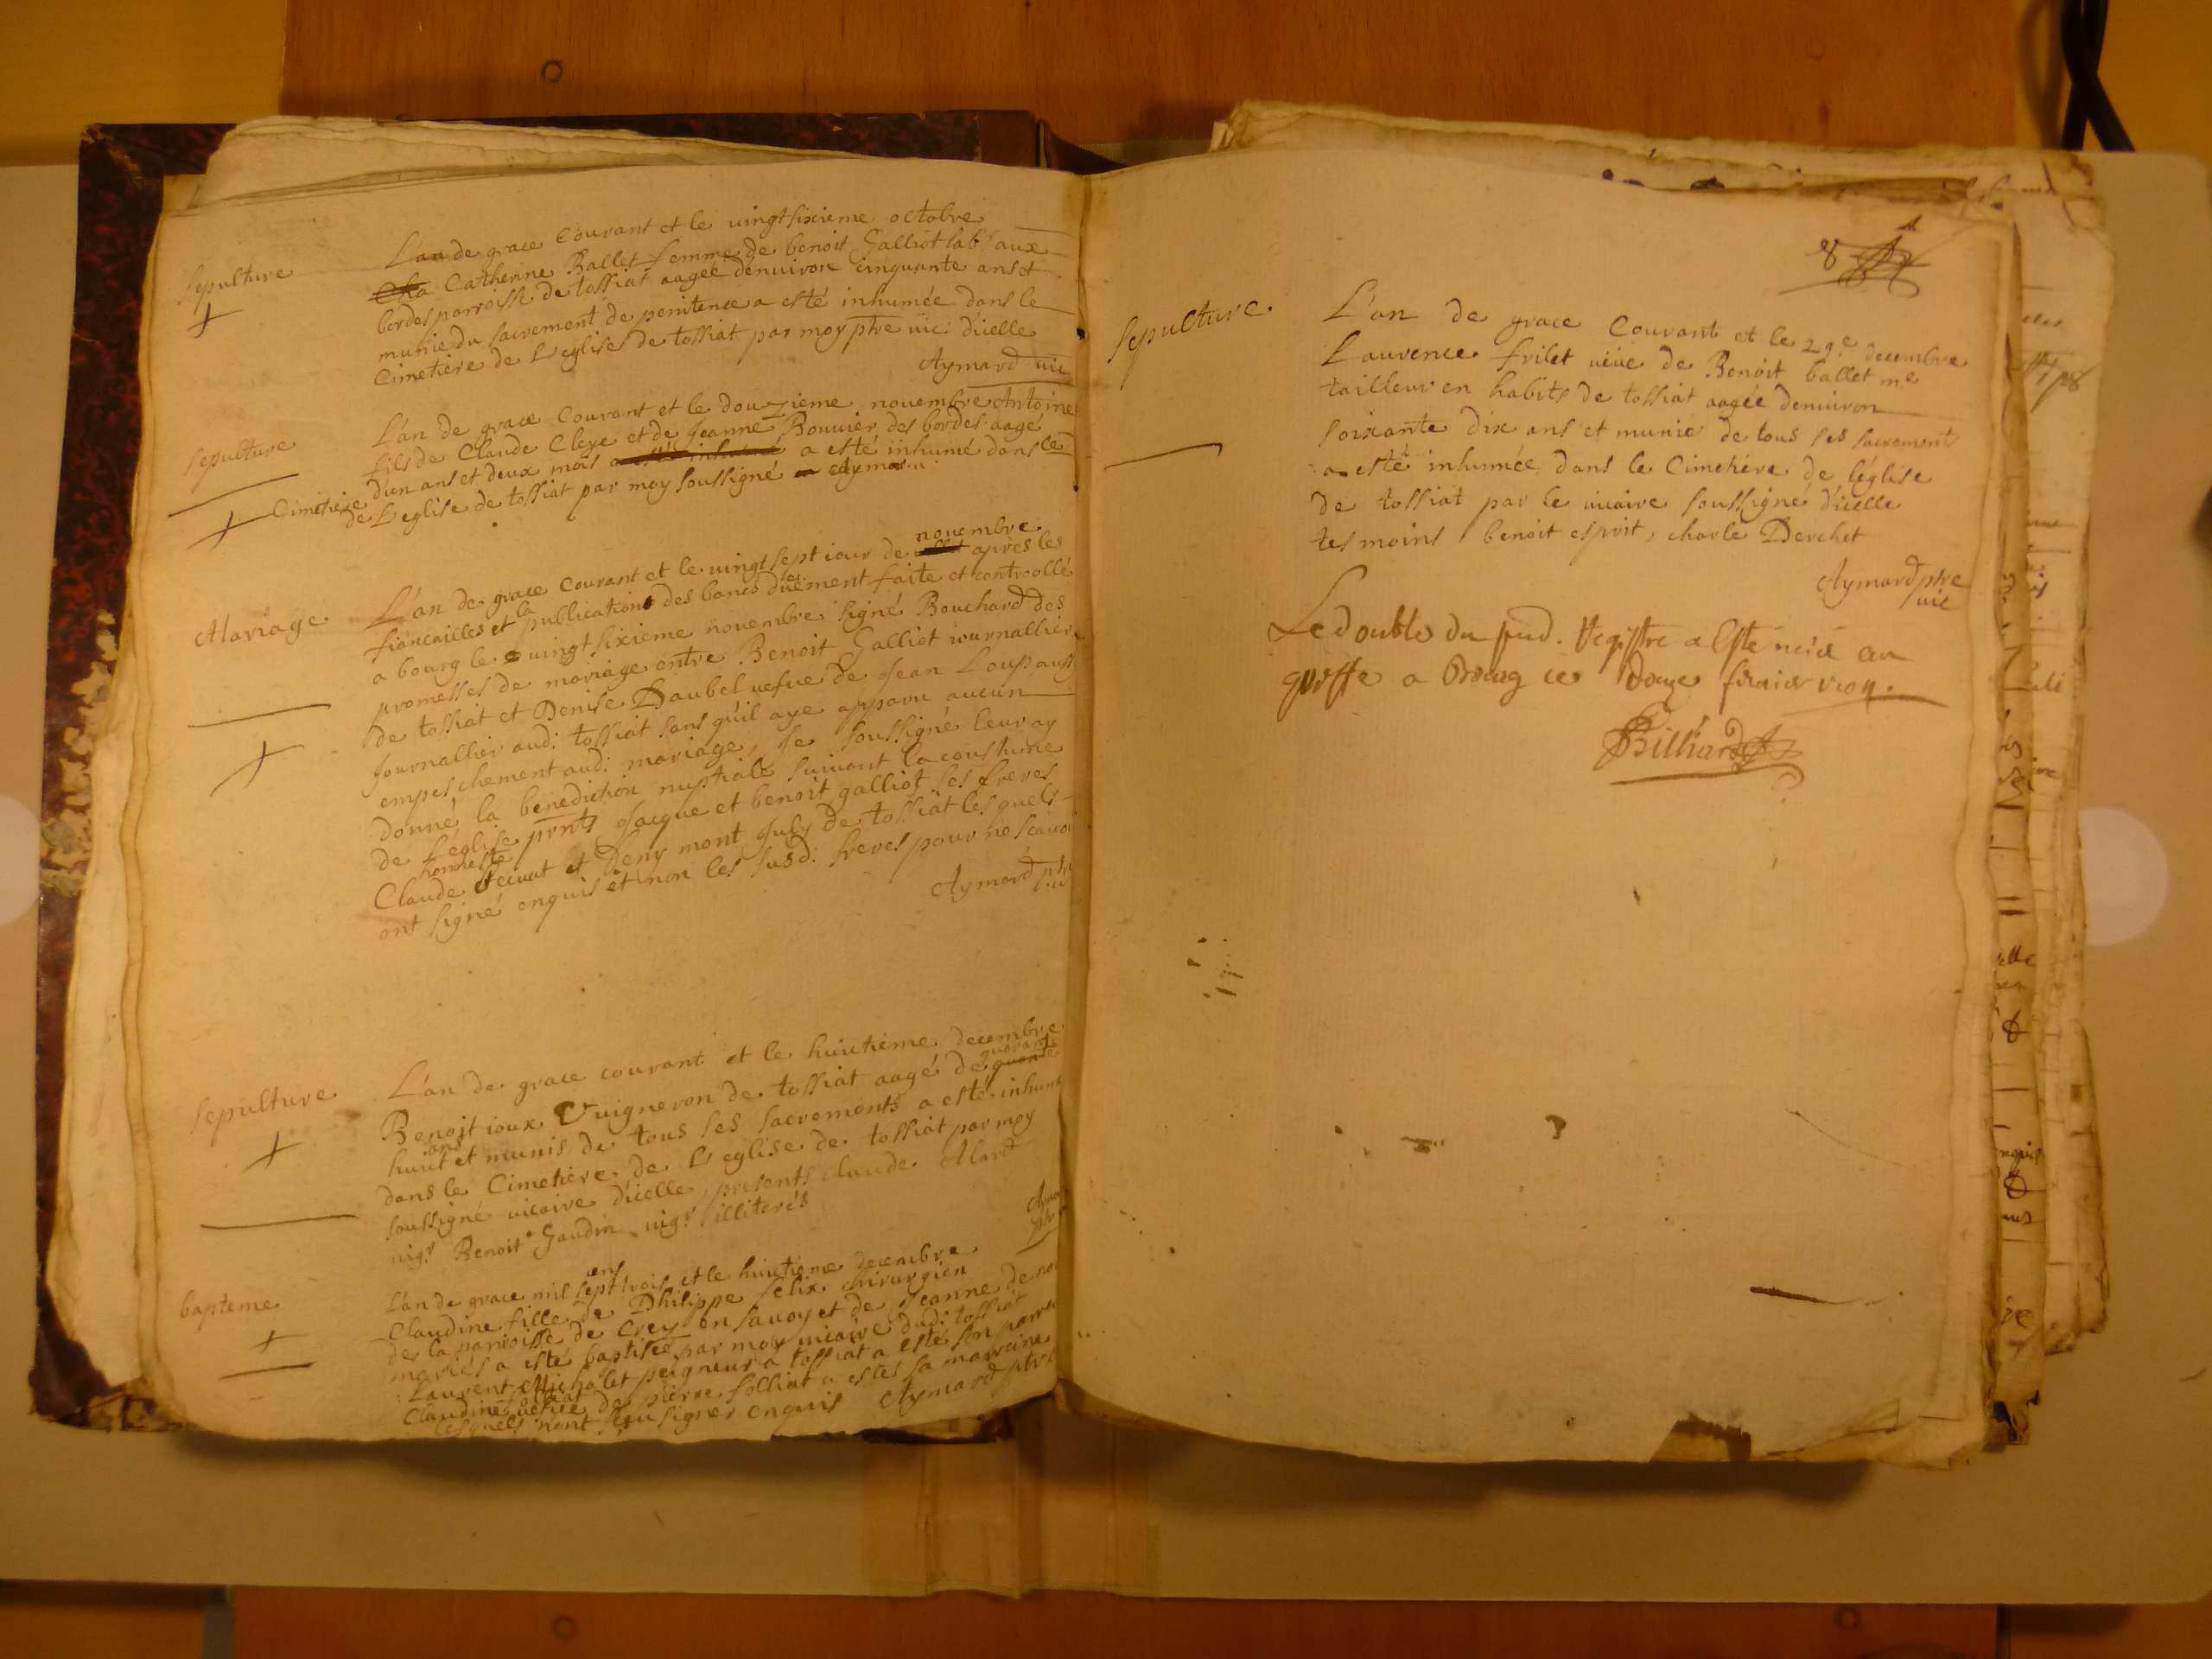 Sepulture
L'an de grace Courant et le uingt sixieme octobre
Catherine Ballet femme de benoit Galliot labr aux
bordes parroisse de tossiat aagée denuiron cinquante ans et
munie du sacrement de penitence a esté inhumée dans le
Cimetiere de L'eglise de tossiat par moy ptre uic: d'icelle
Aymard uic
Sepulture
L'an de grace Courant et le douzieme nouembre Antoine
fils de Claude Cleye et de Jeanne Bouuier des bordes aagé
d'un ans et deux mois a esté inhumé a esté inhumé dans le
Cimetiere de L'eglise de tossiat par moy soussigné
Mariage
L'an de grace Courant et le uingt sept iour de nouembre apres les
fiancailles et la publication des bancs duëment faite et controollé
a bourg le uingt sixieme nouembre signé Bouchard des
promesses de mariage entre Benoit Galliot iournallier
de tossiat et Denise Daubel uefue de Jean Loup aussy
Journallier aud: tossiat sans qu'il aye apparu aucun
empeschement aud: mariage, Je soussigné leur ay
donné la benediction nuptiale suiuant la coustume
de L'eglise prnts Jacque et benoit galliot ses freres
honneste
Claude et Deny mont July de tossiat les quels
ont signé enquis et non les susd: freres pour ne scauoir
Aymard ptre
Sepulture
L'an de grace courant et le huictieme decembre
Benoit ioux Vuigneron de tossiat aagé de quarante
huict ans et munis de tous ses sacrements a esté inhumé
dans le Cimetiere de L'eglise de tossiat par moy
soussigné uicaire d'icelle, presents claude Alard
uigr Benoit Gaudin uigr illiterés
bapteme
L'an de grace mil sept cens trois et le huictieme decembre
Claudine fille de Philippe felix chirurgien
de la parroisse de Crey en sauoy et de Jeanne de
mariés a esté baptisée par moy uicaire dud: tossiat
Laurent Michalet peigneur a tossiat a esté son parrein
Claudine uefue de pierre folliat a esté sa marraine
lesquels n'ont sceu signer enquis Aymard ptre
8
Sepulture
L'an de grace Courant et le 29e decembre
Laurence frilet ueue de Benoit ballet me
tailleur en habits de tossiat aagée denuiron
soixante dix ans et munie de tous ses sacrements
a esté inhumée dans le Cimetiere de léglise
de tossiat par le uicaire soussigné d'icelle
tesmoins benoit esprit, charle Derchet
Aymard ptre
uic
Le double du pnd. Registre a Esté au
greffe a Bourg ce douze
Billiard